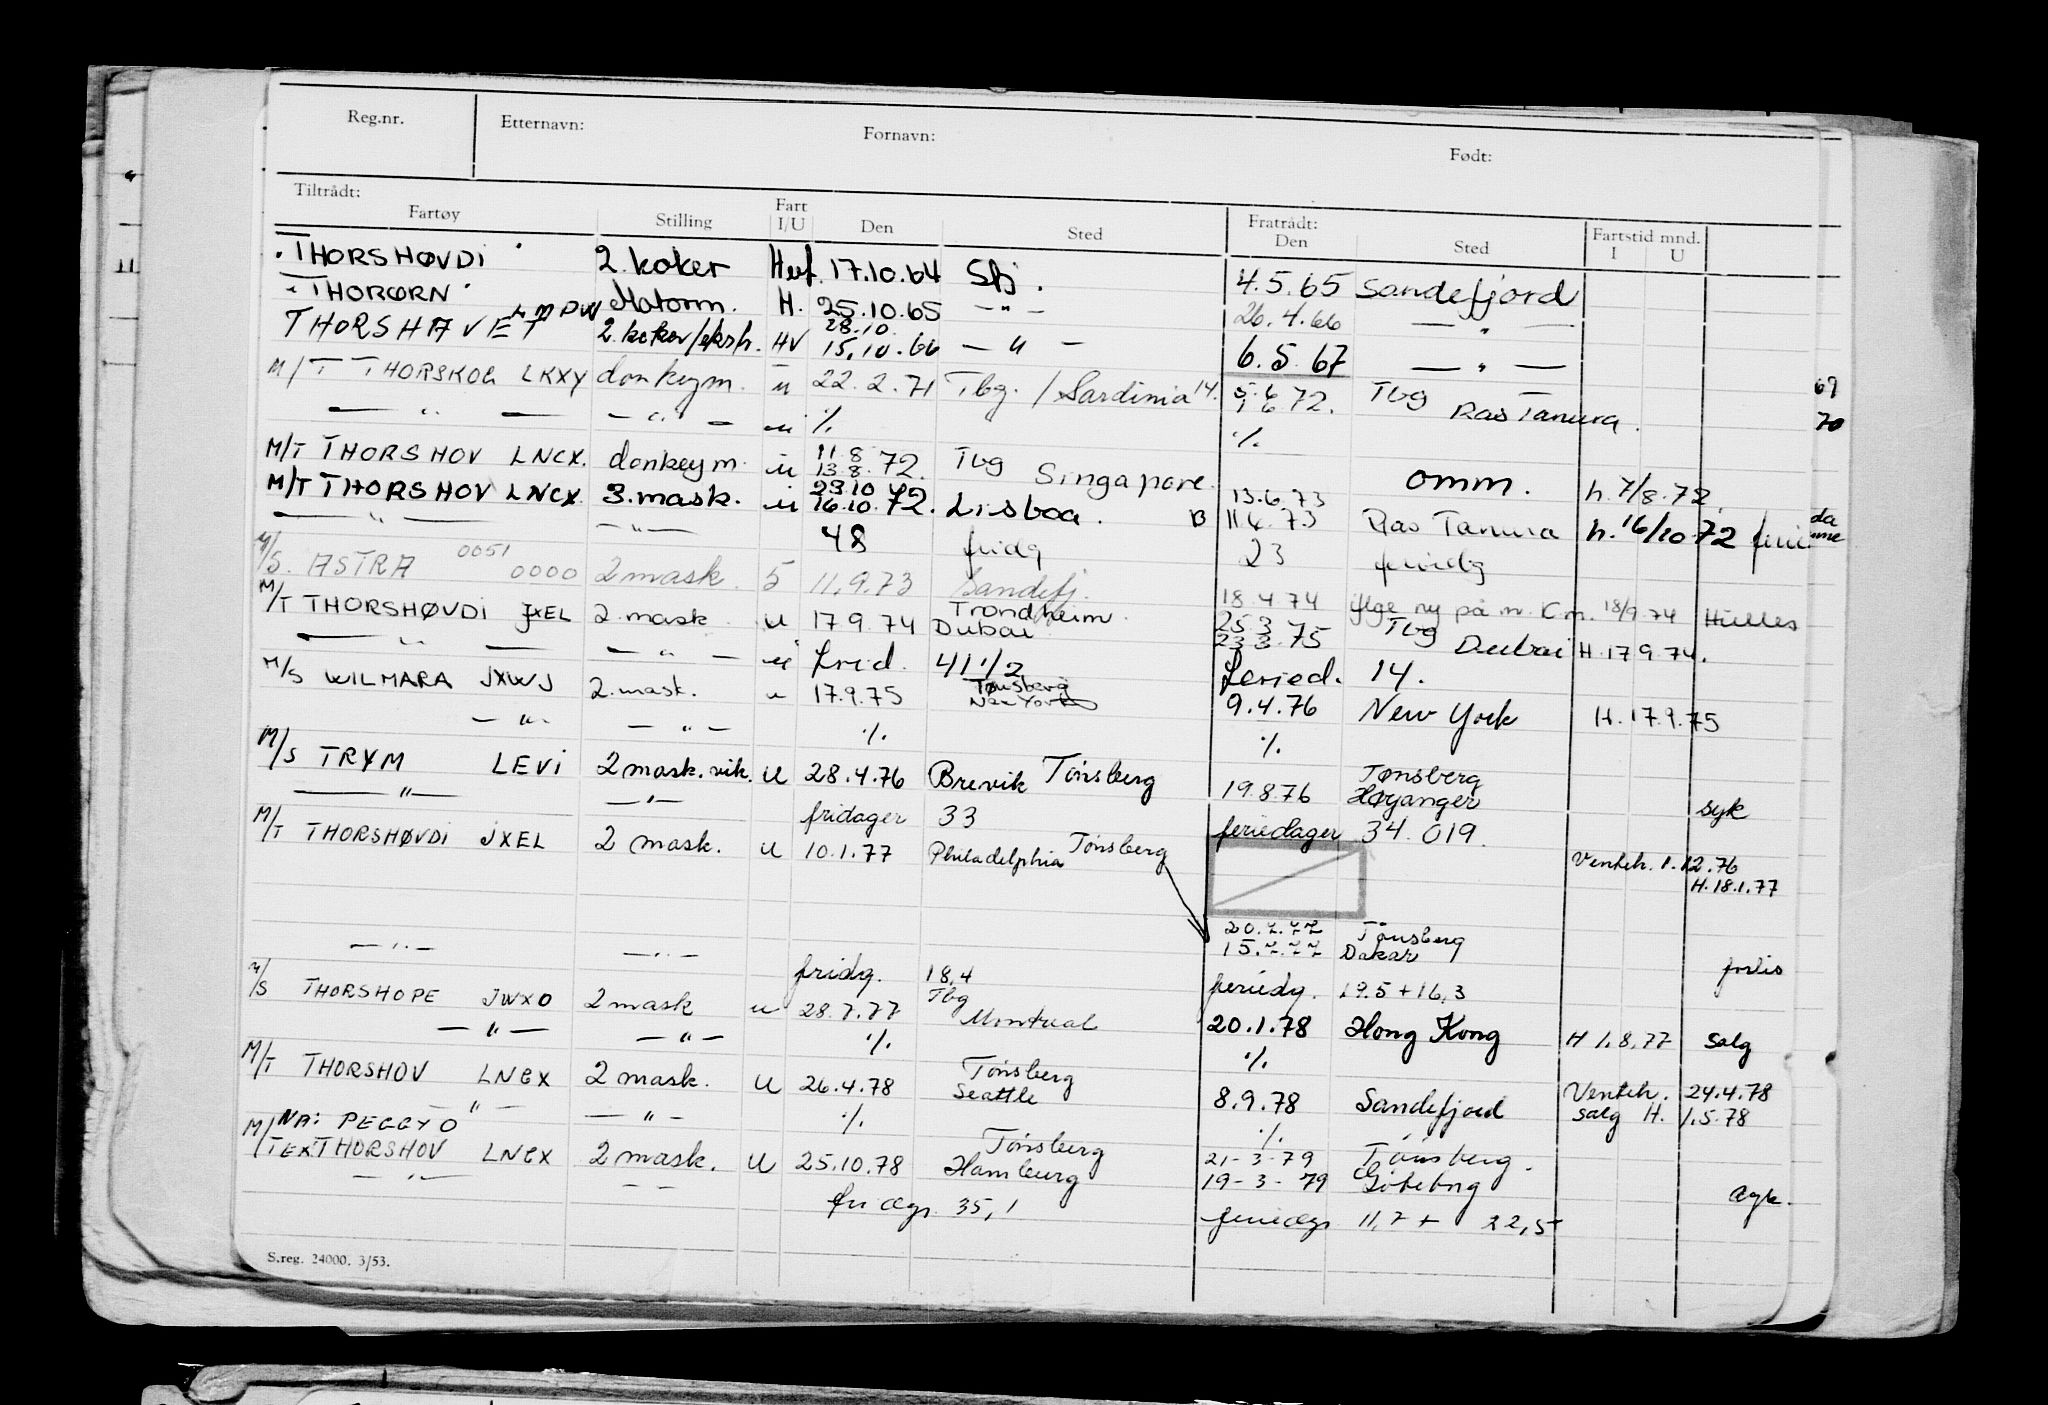 Reg.nr. Etternavn: Fornavn: Født:
Tiltrådt: Fart Fratrådt: Fartstid mnd.
Fartøy Stilling I/U Den Sted Den Sted I U
THORSHØVDI 2. koker Hvf. 17.10.64 Sfj. 4.5.65 Sandefjord
THORØRN Motorm. H. 25.10.65 — " — 26.4.66 — " —
28.10.
THORSHAVET 2. koker/ekstr. HV 15.10.66 — " — 6.5.67 — " —
M/T THORSKOG LKXY donkeym. u 22.2.71 Tbg. / Sardinia 14. 5.6 72. Tbg Ras Tanura. 69
— " — — " — u % % 70
M/T THORSHOV LNCX. donkeym. u 11.8 13.8. 72. Tbg Singapore. omm. h. 7/8.72
M/T THORSHOV LNCX 3. mask. u 23.10 16.10. 72. Lisboa. 13.6.73 11.6.73 Ras Tanura h. 16/10 72
— " — — " — 48 fridg 23 feridg
M/S. ASTRA 0051 0000 2 mask. 5 11.9.73 Sandefj. 18.4.74 iflge ny på m. 18/9.74
M/T THORSHØVDI JXEL 2. mask. u 17.9.74 Trondheim. Dubai 25.3 23.3. 75 Tbg Dubai H. 17.9.74.
— " — — " — u frid. 41 1/2 feried. 14.
M/S WILMARA JXWJ 2. mask. u 17.9.75 Tønsberg New York 9.4.76 New York H. 17.9.75
— " — — " — % %
M/S TRYM LEVI 2 mask. vik. u 28.4.76 Brevik Tönsberg 19.8.76 Tønsberg Høyanger syk
— " — — " — fridager 33 feriedager 34. 019.
M/T THORSHØVDI JXEL 2 mask. u 10.1.77 Philadelphia Tönsberg Venteh. 1.12.76
H. 18.1.77
20.7.77 Tönsberg
— " — — " — 15.7.77 Dakar
fridg. 18,4 feriedg. 19.5 + 16,3 forlis
M/S THORSHOPE JWXO 2 mask u 28.7.77 Tbg Montreal 20.1.78 Hong Kong H 1.8.77 salg
— " — — " — % %
M/T THORSHOV LNCX 2 mask. u 26.4.78 Tönsberg Seattle 8.9.78 Sandefjord Venteh. 24.4.78
salg H. 1.5.78
— " — — " — % %
NA: PEGGY O
M/T EX THORSHOV LNCX 2 mask. u 25.10.78 Tönsberg Hamburg 21-3-79 Tönsberg.
— " — — — 19-3-79 Göteborg
fridgr 35,1 feriedgr 11,7 + 22,5
S.reg. 24000. 3/53.